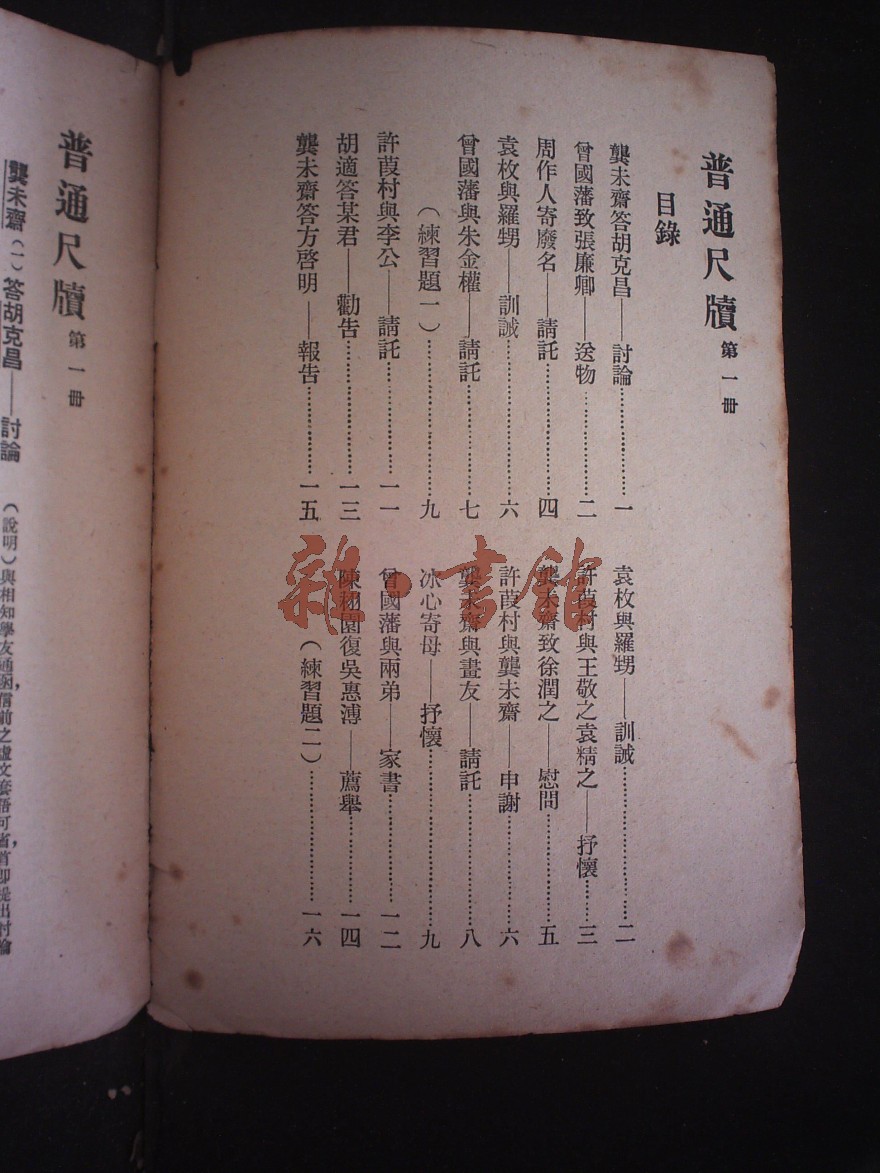 普通尺牘 第一冊
目錄
龔未齋答胡克昌——討論…………一
袁枚與羅甥——訓誡…………二
曾國藩致張廉卿——送物…………二
許葭村與王敬之袁精之——抒懷……三
周作人寄廢名——請託…………四
龔未齋致徐潤之——慰問…………五
袁枚與羅甥——訓誡…………六
許葭村與龔未齋——申謝…………六
曾國藩與朱金權——請託…………七
龔未齋與畫友——請託…………八
（練習題一）…………九
冰心寄母——抒懷…………九
許葭村與李公——請託…………一一
曾國藩與兩弟——家書…………一二
胡適答某君——勸告…………一三
陳栩園復吳惠溥——薦舉…………一四
龔未齋答方啓明——報告…………一五
（練習題二）…………一六
普通尺牘 第一冊
龔未齋（一）答胡克昌——討論
（說明）與相知學友通函，信前之虛文套語可省，首即提出討論
雜·書館